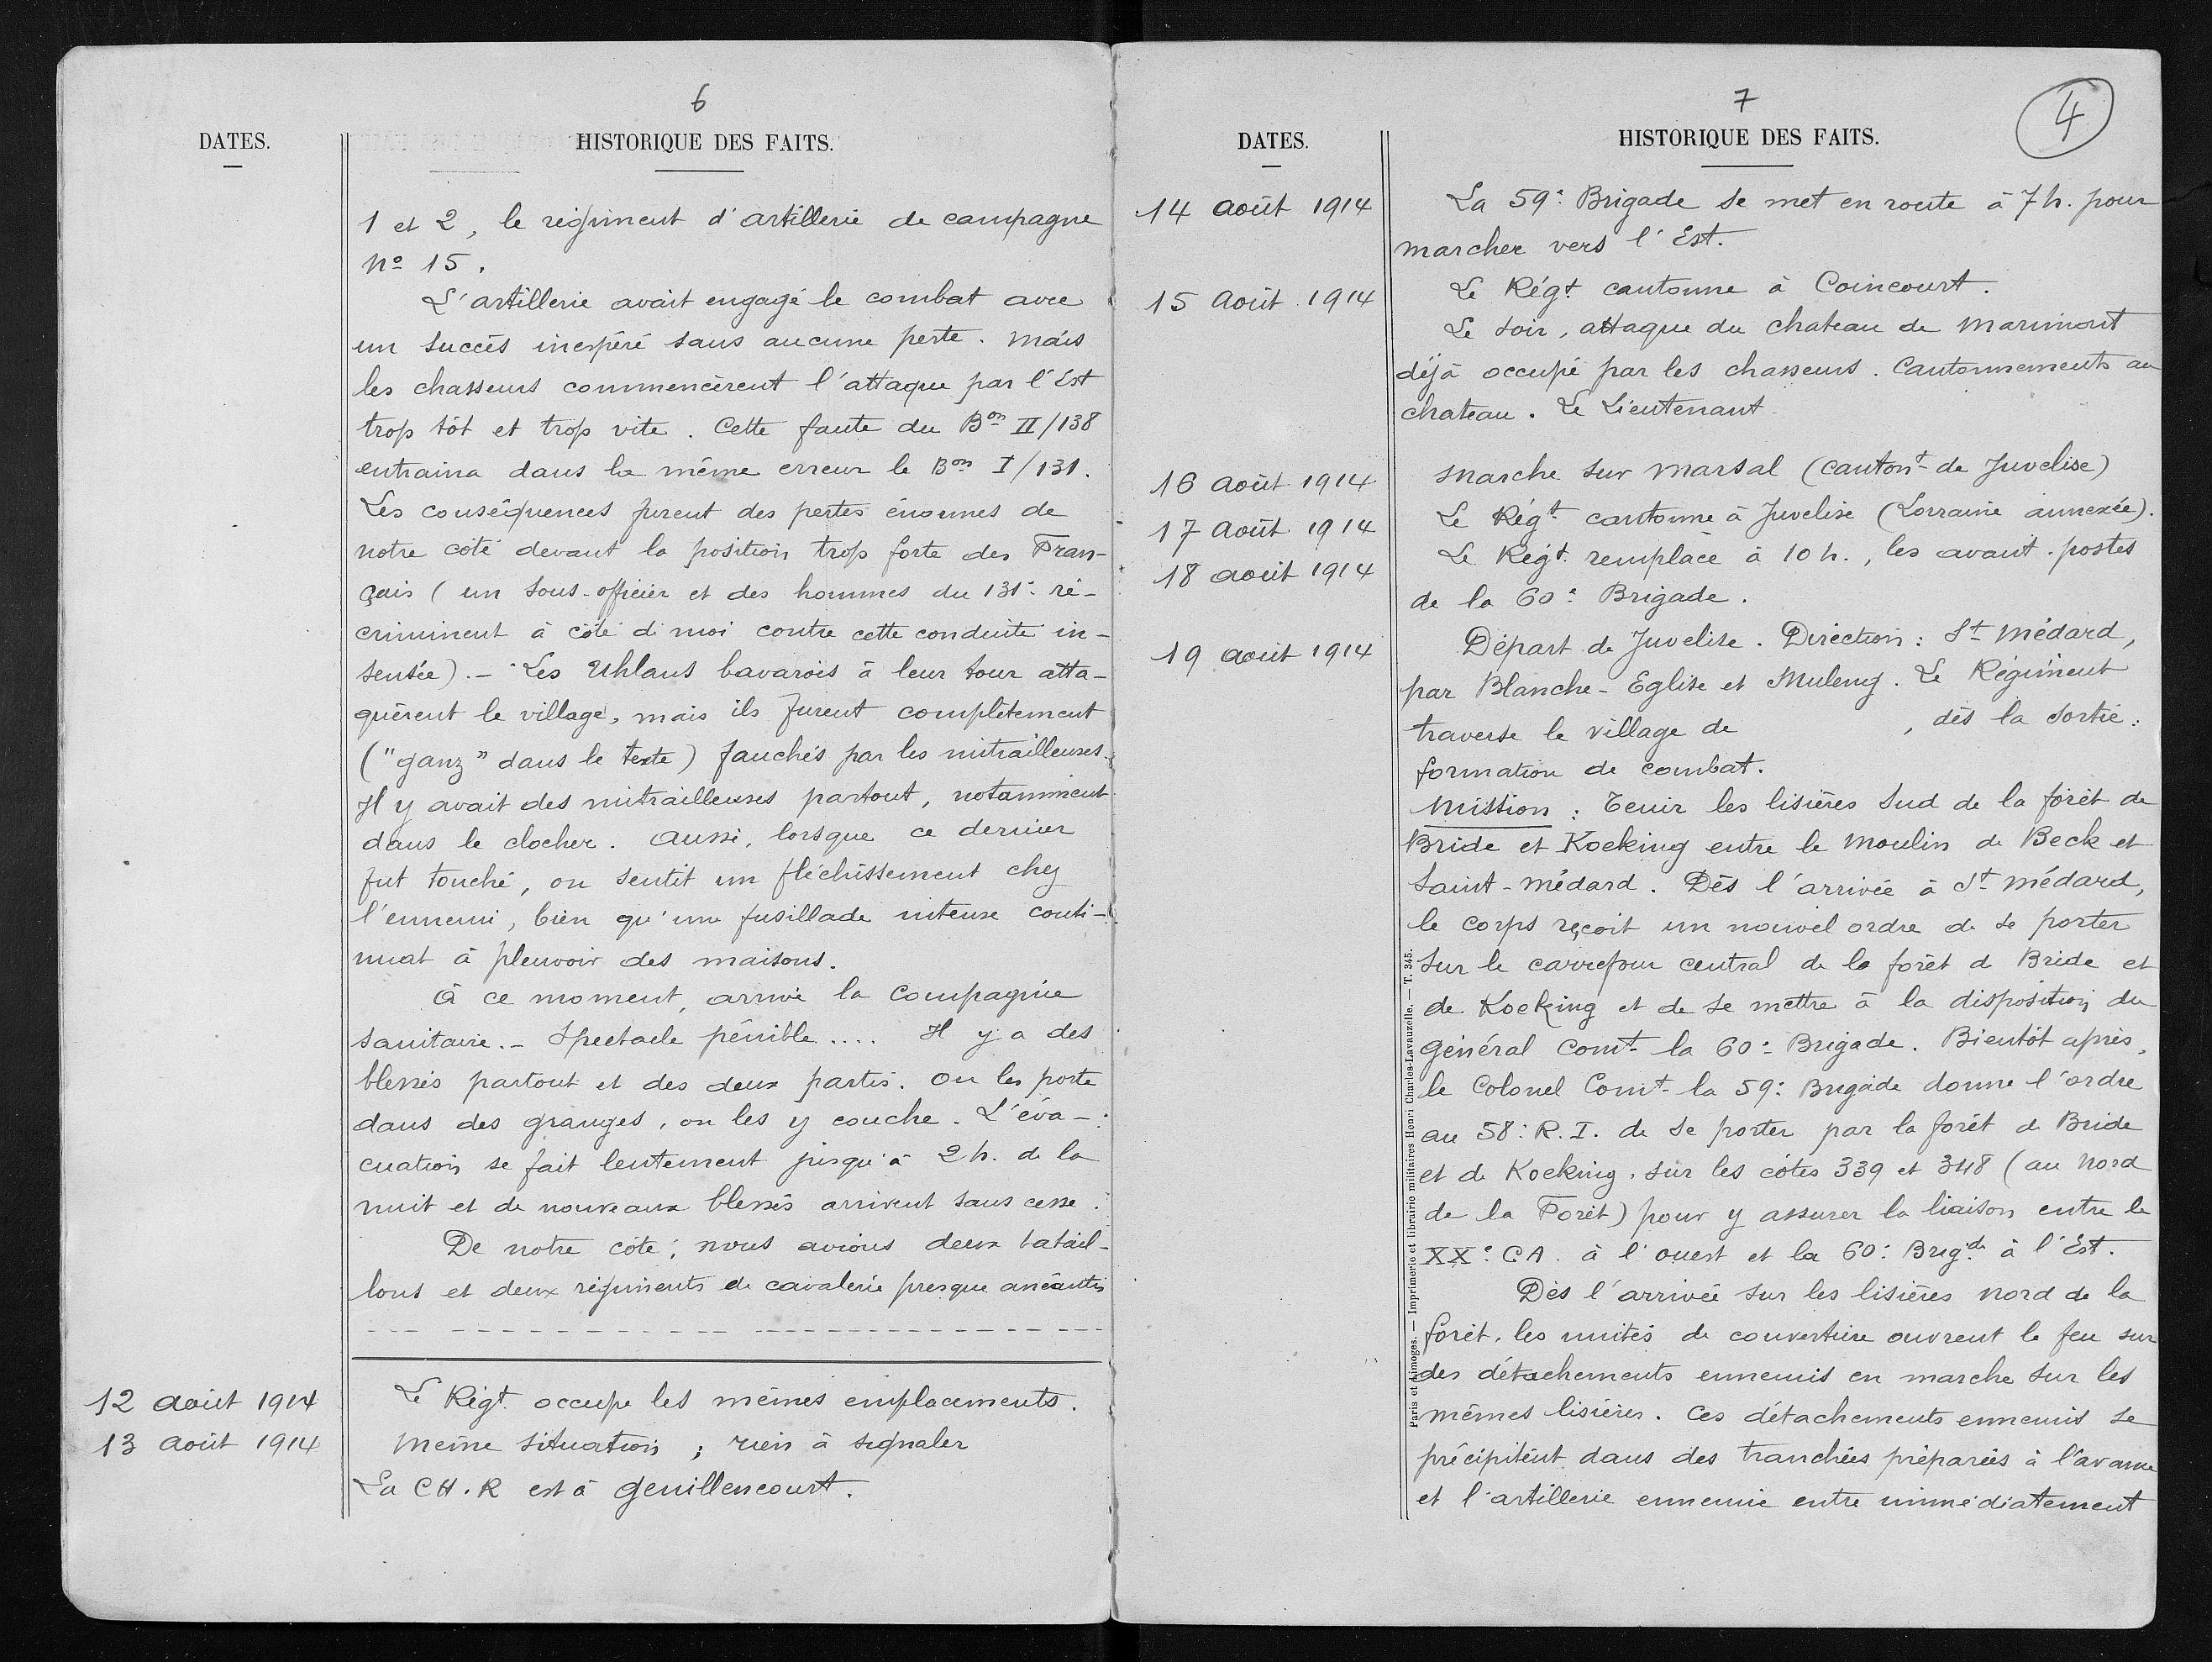 6
DATES.
HISTORIQUE DES FAITS.
1 et 2, le régiment d'artillerie de campagne
No 15.
L'artillerie avait engagé le combat avec
un succès inespéré sans aucune perte. Mais
les chasseurs commencèrent l'attaque par l'Est
trop tôt et trop vite. Cette faute du Bon II/138
entraina dans la même erreur le Bon I/131.
Les conséquences furent des pertes énormes de
notre côté devant la position trop forte des Fran-
çais (un sous-officier et des hommes du 131e ré-
criminent à côté di moi contre cette conduite in-
sensée). - Les Uhlans bavarois à leur tour atta-
quèrent le village, mais ils furent complètement
("ganz" dans le texte) fauchés par les mitrailleuses.
Il y avait des mitrailleuses partout, notamment
dans le clocher. Aussi, lorsque ce dernier
fut touché, on sentit un fléchissement chez
l'ennemi, bien qu'une fusillade intense conti-
nuat à pleuvoir des maisons.
A ce moment, arrive la Compagnie
sanitaire. - Spectacle pénible .... Il y a des
blessés partout et des deux partis. On les porte
dans des granges, on les y couche. L'éva-
cuation se fait lentement jusqu'à 2 h. de la
nuit et de nouveaux blessés arrivent sans cesse.
De notre côté, nous avions deux batail-
lons et deux régiments de cavalerie presque anéantis
12 août 1914
Le Régt. occupe les mêmes emplacements.
13 août 1914
Même situation ; rien à signaler
La CH.R est à Genillencourt.
7
4
DATES.
HISTORIQUE DES FAITS.
14 août 1914
La 59e Brigade se met en route à 7 h. pour
marcher vers l'Est.
15 août 1914
Le Régt cantonne à Coincourt.
Le soir, attaque du chateau de Marimont
déjà occupé par les chasseurs. Cantonnements au
chateau. Le Lieutenant
16 août 1914
Marche sur Marsal (cantont de Juvelise)
17 Août 1914
Le Régt cantonne à Juvelise (Lorraine annexée).
18 août 1914
Le Régt. remplace à 10 h., les avant-postes
de la 60e Brigade.
19 août 1914
Départ de Juvelise. Direction : St Médard,
par Blanche-Eglise et Muleng. Le Régiment
traverse le village de , dès la sortie :
formation de combat.
Mission : Tenir les lisières Sud de la forêt de
Bride et Koeking entre le Moulin de Beck et
Saint-Médard. Dès l'arrivée à St Médard,
le corps reçoit un nouvel ordre de se porter
sur le carrefour central de la forêt de Bride et
de Koeking et de se mettre à la disposition du
Général Comt la 60e Brigade. Bientôt après,
le Colonel Comt la 59e Brigade donne l'ordre
au 58e R.I. de se porter par la forêt de Bride
et de Koeking, sur les côtes 339 et 348 (au Nord
de la Forêt) pour y assurer la liaison entre le
XXe C.A. à l'ouest et la 60e Brigde à l'Est.
Dès l'arrivée sur les lisières nord de la
forêt, les unités de couverture ouvrent le feu sur
des détachements ennemis en marche sur les
mêmes lisières. Ces détachements ennemis se
précipitent dans des tranchées préparées à l'avance
et l'artillerie ennemie entre immédiatement
Paris et Limoges. — Imprimerie et librairie militaires Henri Charles-Lavauzelle. — T. 345.